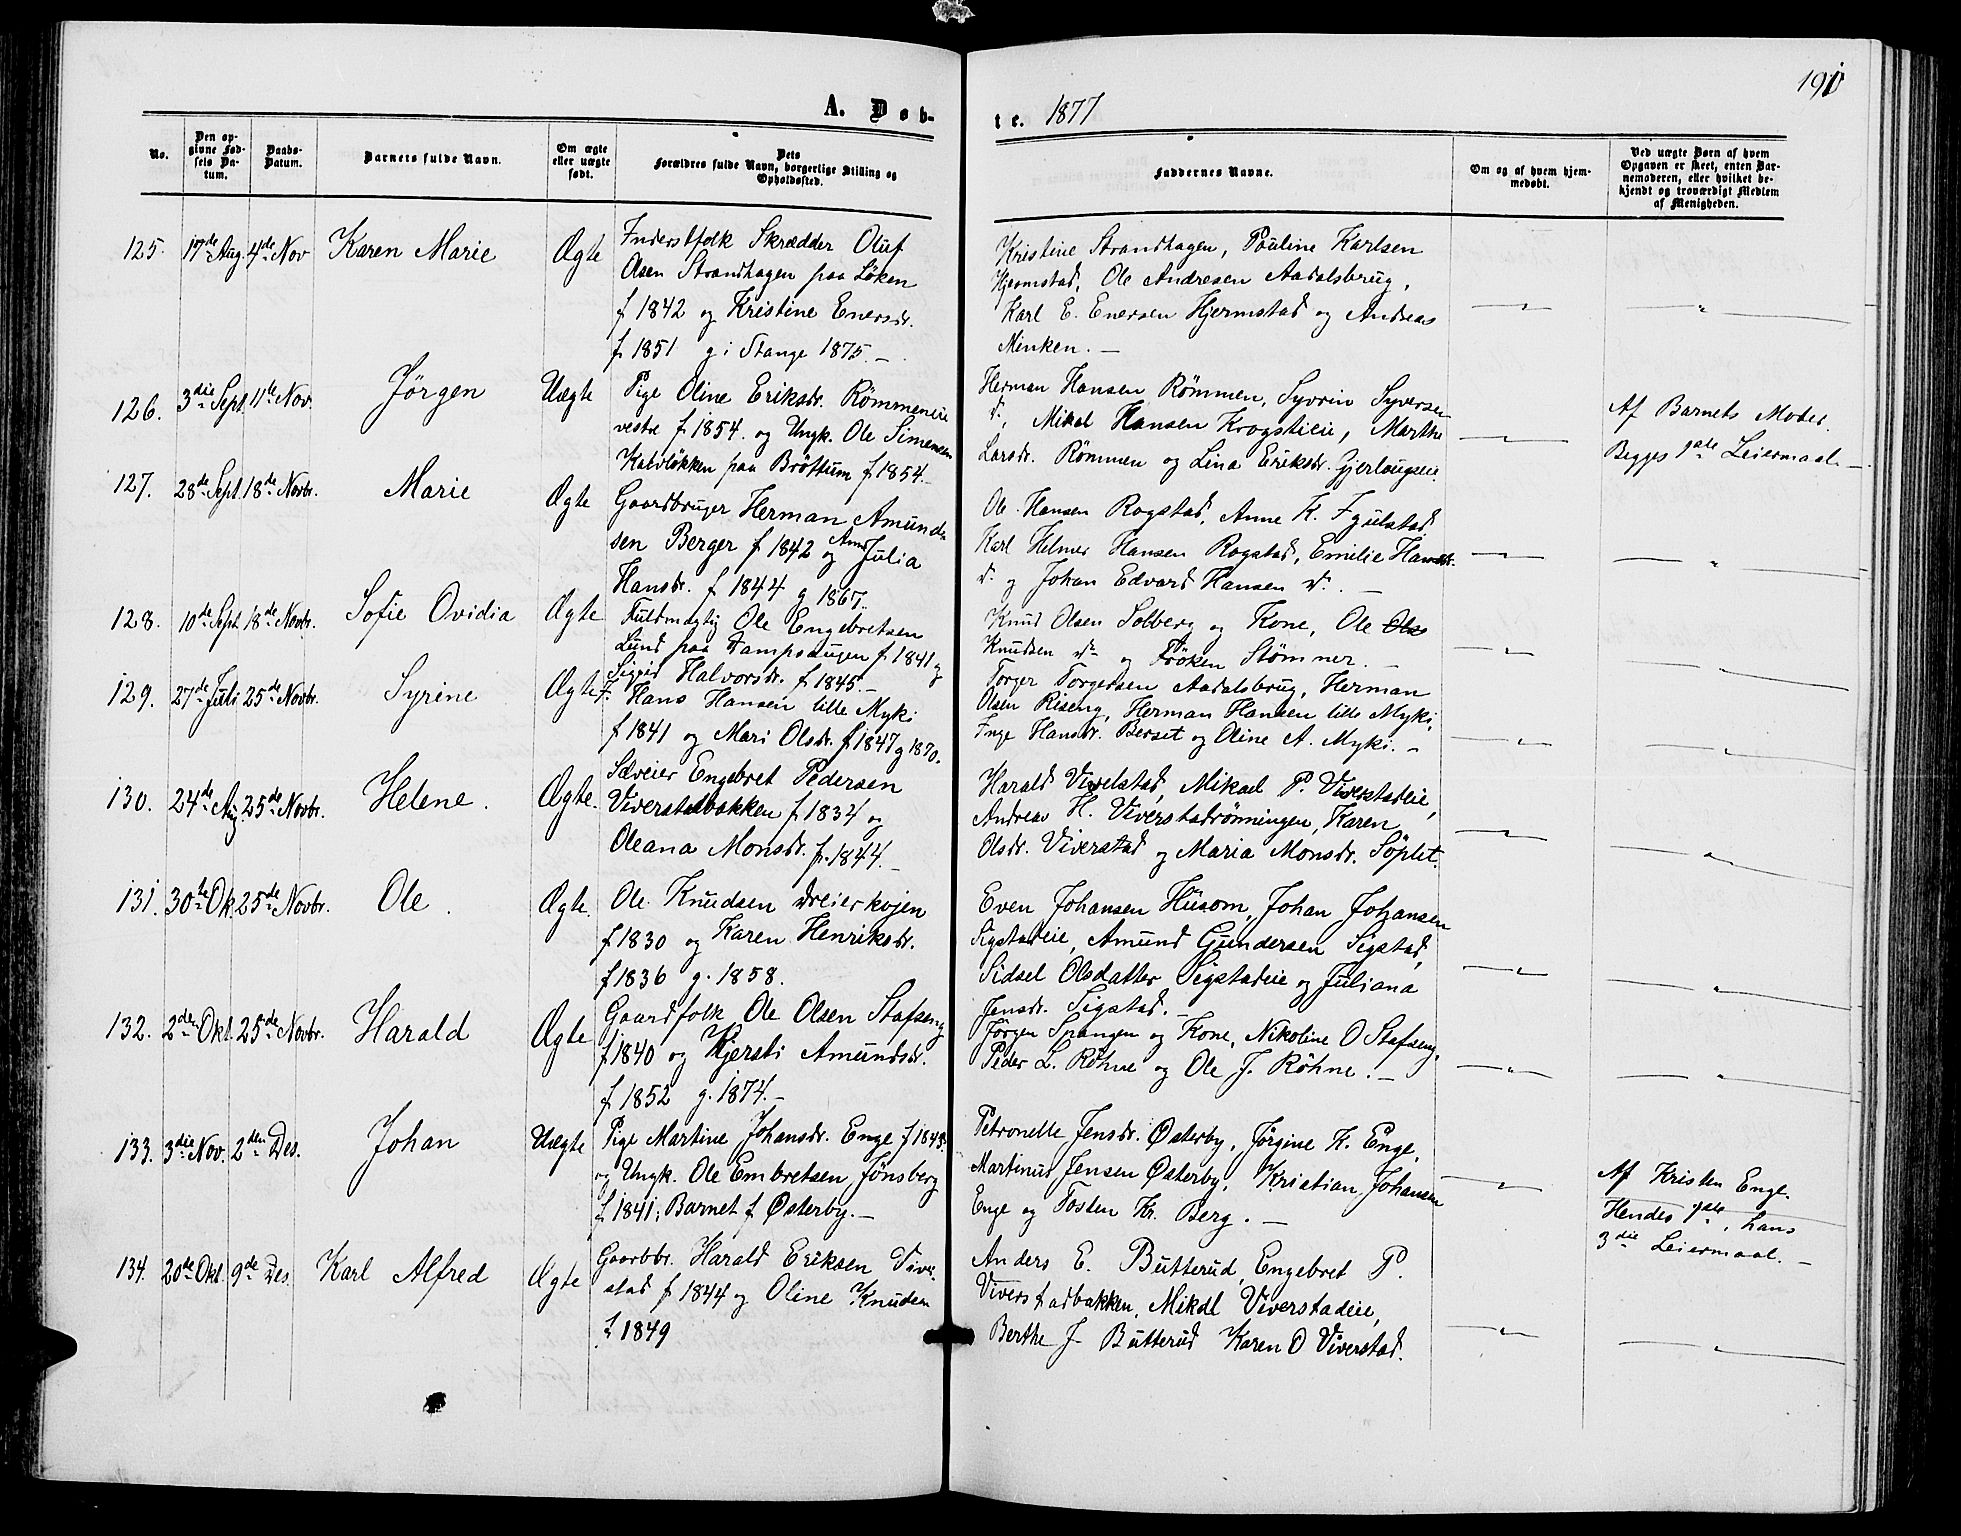 190
A. Døb-
te. 1877
No.
Den op-
givne Fød-
sels Da-
tum.
Daabs-
Datum.
Barnets fulde Navn.
Om ægte
eller uægte
født.
Dets
Forældres fulde Navn, borgerlige Stilling og
Opholdssted.
Faddernes Navne.
Om og af hvem hjem-
medøbt.
Ved uægte Børn af hvem
Opgaven er skeet, enten Bar-
nemoderen, eller hvilket be-
kjendt og troværdigt Medlem
af Menigheden.
125. 17de Aug. 4de Nov Karen Marie Ægte Inderstfolk Skrædder Oluf
Olsen Strandhagen paa Løken
f 1842 og Kristine Enersdr.
f 1851 g i Stange 1875. –
Kristine Strandhagen, Pauline Karlsen
Hjermstad, Ole Andresen Aadalsbrug,
Karl E. Enersen Hjermstad og Andreas
Minken. –
126. 3die Sept. 11te Nov. Jörgen Uægte Pige Oline Eriksdr. Römmeneie
vestre f 1854. og Ungk. Ole Simensen
Kalvløkken paa Bröttum f 1854. –
Herman Hansen Römmen, Syvrin Syversen
do, Mikal Hansen Krogstieie, Marthe
Larsdr. Römmen og Lina Eriksdr. Gjerlaugeie.
Af Barnets Moder.
Begges 1ste Leiermaal –
127. 28de Sept. 18de Novbr. Marie Ægte Gaardbruger Herman Amund-
sen Berger f 1842 og Anne Julia
Hansdr. f 1844 g 1867.
Ole Hansen Rogstad, Anne K. Fjulstad
Karl Helmer Hansen Rogstad, Emilie Hansdr.
do og Johan Edvard Hansen do. –
128. 10de Sept 18de Novbr. Sofie Ovidia Ægte Fuldmægtig Ole Engebretsen
Lund paa Dampsaugen f 1841 og
Sigrid Halvorsdr. f 1845. –
Knud Olsen Solberg og Kone, Ole Ols
Knudsen do og Fröken Stömner. –
129. 27de Juli 25de Novbr. Syrine Ægte F. Hans Hansen lille Myki
f 1841 og Mari Olsdr. f 1847 g 1870.
Torger Torgersen Aadalsbrug, Herman
Olsen Riseng, Herman Hansen lille Myki,
Inge Hansdr. Berset og Oline A. Myki. –
130. 24de Aug. 25de Novbr. Helene. Ægte. Sæveier Engebret Pedersen
Viverstadbakken f 1834 og
Oleana Monsdr. f. 1844. –
Harald Vivelstad, Mikael P. Viverstadeie,
Andreas H. Viverstadrönningen, Karen
Olsdr. Viverstad og Maria Monsdr. Söplet.
131. 30te Ok. 25de Novbr. Ole. Ægte. Ole Knudsen Dreierkojen
f 1830 og Karen Henriksdr.
f 1836 g. 1858.
Even Johansen Husom, Johan Johansen
Sigstadeie, Amund Gundersen Sigstad,
Sidsel Olsdatter Sigstadeie og Juliana
Jensdr. Sigstad. –
132. 2den Okt. 25de Novbr. Harald Ægte Gaardfolk Ole Olsen Stafseng
f 1840 og Kjersti Amundsdr.
f 1852 g. 1874. –
Jörgen Spangen og Kone, Nikoline O Stafseng,
Peder L. Röhne og Ole J. Röhne. –
133. 3die Nov. 2den Des. Johan Uægte Pige Martine Johansdr. Enge f 1848.
og Ungk. Ole Embretsen Jönsberg
f. 1841; Barnet f. Østerby. –
Petronelle Jensdr. Østerby, Jörgine K. Enge,
Martinus Jensen Østerby, Kristian Johansen
Enge og Tosten Kr. Berg. –
Af Kristen Enge.
Hendes 1ste, hans
3die Leiermaal. –
134. 20de Okt. 9de Des. Karl Alfred Ægte Gaardbr. Harald Eriksen Viver-
stad f 1844 og Oline Knudsen
f 1849
Anders E. Butterud, Engebret P.
Viverstadbakken, Mikal Viverstadeie,
Berthe J. Butterud Karen O Viverstad.